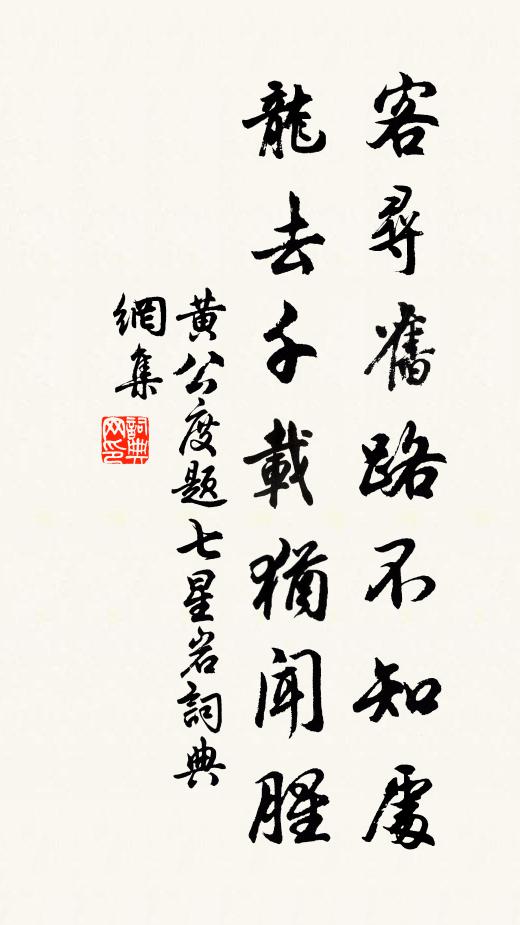 客尋舊路不知處
龍去千載猶聞腥
黃公度題七星岩詞典
網集
詞典網印